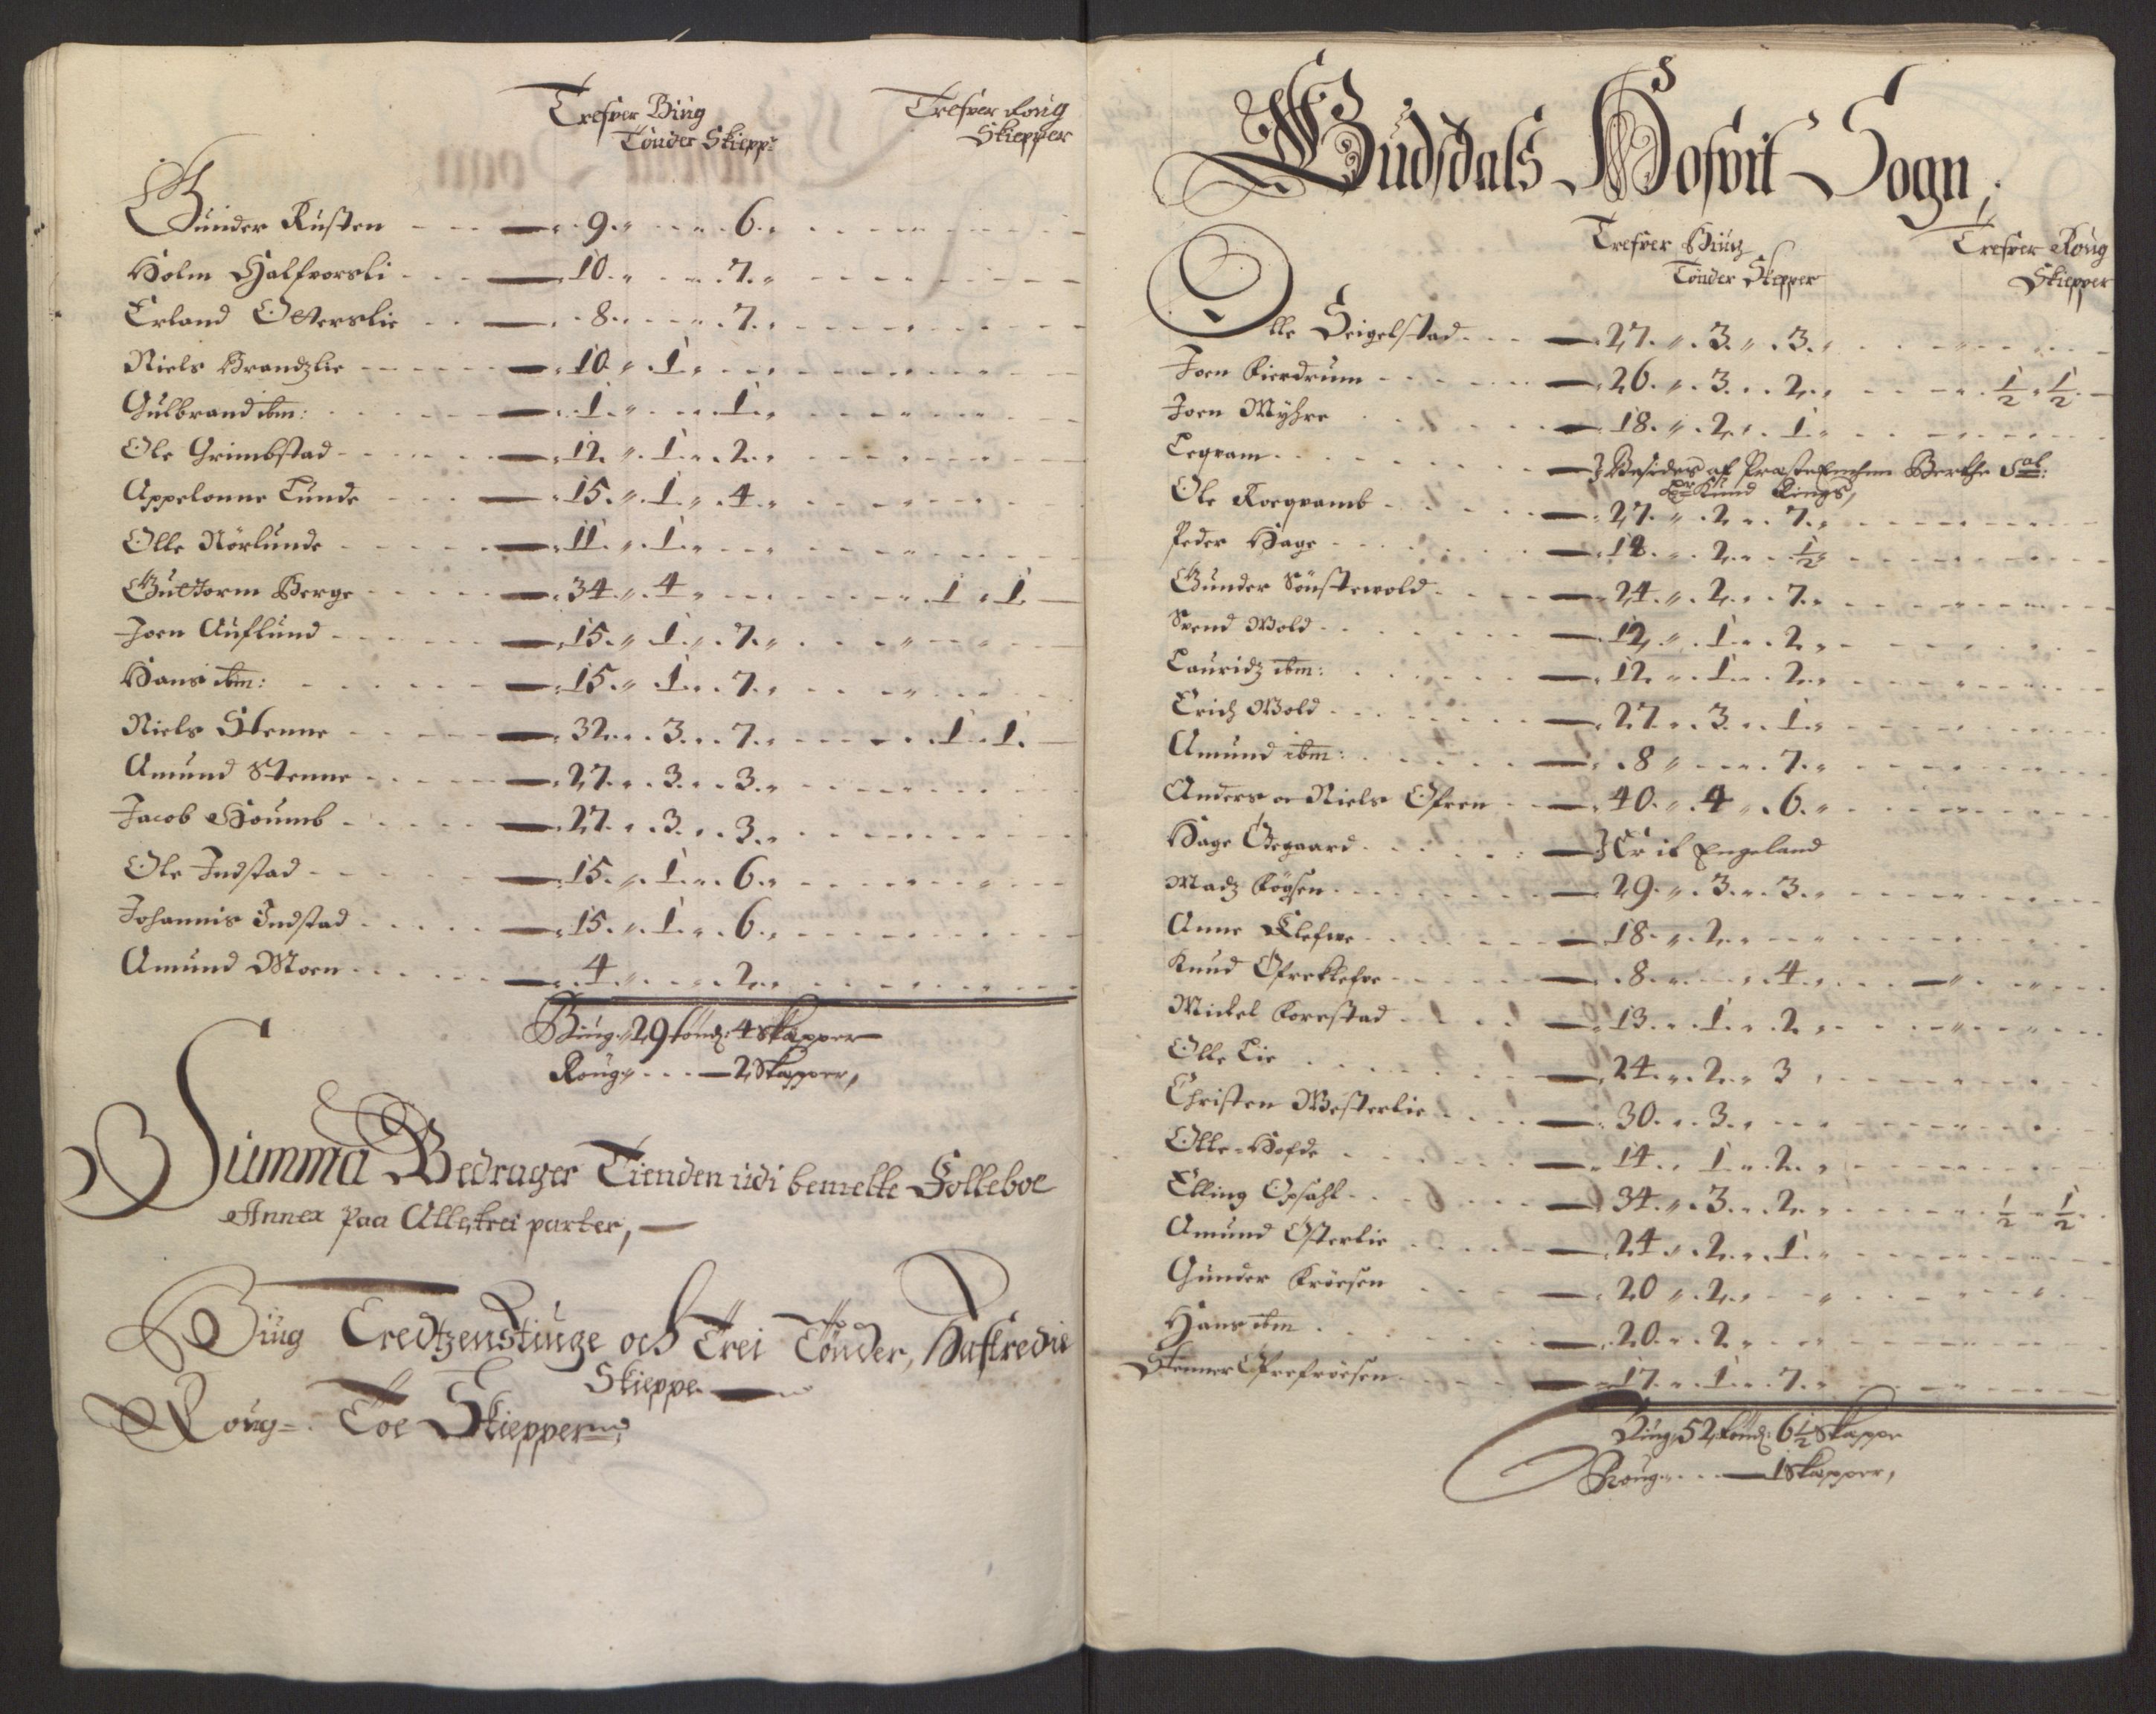 Trefver Biug
Tønder Skiepp:
Trefver Roug
Skiepper
Gunder Rusten 9. 6.
Holm Halfvorsli 10. 7.
Erland Olterslie 8. 7.
Niels Brandzlie 10. 1.
Gulbrand ibm: 1. 1.
Ole Grimbstad 12. 1. 2.
Appelonne Lunde 15. 1. 4.
Olle Nörlunde 11. 1.
Guldorm Berge 34. 4 1. 1.
Joen Auflund 15. 1. 7.
Hans ibm: 15. 1. 7.
Niels Stenne 32. 3. 7. 1. 1.
Amund Stenne 27. 3. 3.
Jacob Houmb 27. 3. 3.
Ole Indstad 15. 1. 6.
Johannis Indstad 15. 1. 6.
Amund Moen 4. 2.
Biug 29 tønd: 4 Skæpper
Roug 2 Skæpper,
Summa Bedrager Tienden udi bemelte Folleboe
Annex paa Alle trei parter,
Biug Tredtzenstiuge och Trei Tønder, Halfredie
Skieppe
Roug Toe Skiepper
Gudsdals Hofvit Sogn,
Trefver Biug
Tønder Skepper
Trefver Roug
Skiepper
Olle Seigelstad 27. 3. 3.
Joen Kierdrum 26. 3. 2. 1/2 1/2
Joen Myhre 18. 2. 1.
Leqvam Besides af Præste Enchen Berthe Sal:
Hr Knud Rings,
Ole Roeqvamb 27. 2. 7.
Peder Hage 18. 2. 1/2
Gunder Sönstewold 24. 2. 7.
Svend Wold 12. 1. 2.
Lauridz ibm: 12. 1. 2.
Erich Wold 27. 3. 1.
Amund ibm: 8 7.
Anders oc Niels Ofren 40. 4. 6.
Hage Ödegaard Er it Engeland
Madz Köhsen 29. 3. 3.
Anne Klefwe 18. 2.
Knud Ofreklefve 8. 4.
Mickel Forrstad 13. 1. 2.
Olle Lie 24. 2. 3
Christen Westerlie 30. 3.
Olle Hofde 14. 1. 2.
Elling Opsahl 34. 3. 2. 1/2 1/2
Amund Österlie 24. 2. 1.
Gunder Fröesen 20. 2.
Hans ibm 20. 2
Stenner Ofrefröesen 17. 1. 7.
Biug 52 tønd: 6 1/2 Skæppe
Roug 1 Skæpper,